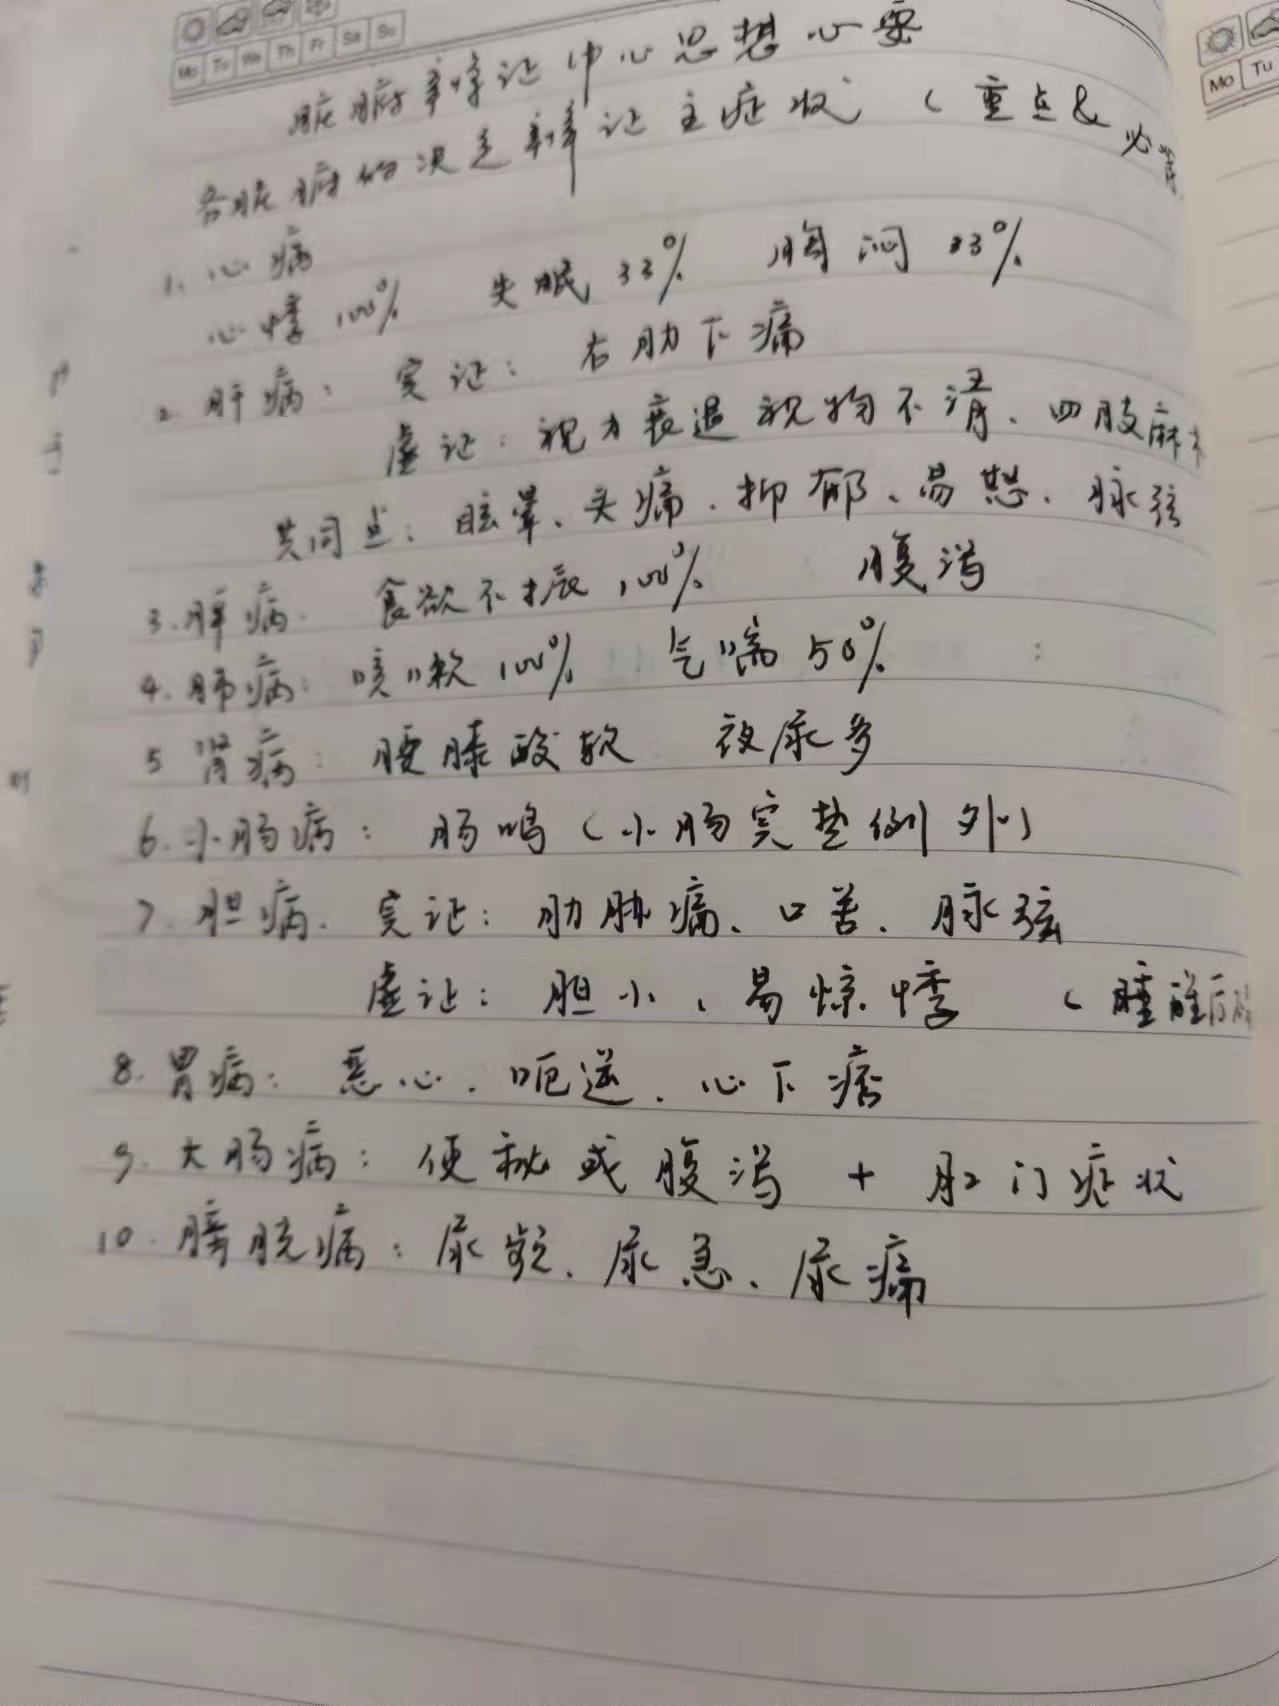 Mo Tu We Th Fr Sa Su
Mo Tu
脏腑辩证中心思想
各脏腑的决定辩证主症状 (重点&必
1. 心病
心悸 100% 失眠 33% 胸闷 33%
2. 肝病: 实证: 右肋下痛
虚证: 视力衰退 视物不清、四肢麻木
共同点: 眩晕、头痛、抑郁、易怒、脉弦
3. 脾病. 食欲不振 100% 腹泻
4. 肺病: 咳嗽 100% 气喘 50%
5 肾病: 腰膝酸软 夜尿多
6. 小肠病: 肠鸣 (小肠实热例外)
7. 胆病. 实证: 肋胁痛、口苦、脉弦
虚证: 胆小、易惊悸 (
8. 胃病: 恶心、呃逆、心下痞
9. 大肠病: 便秘或腹泻 + 肛门症状
10. 膀胱病: 尿频、尿急、尿痛